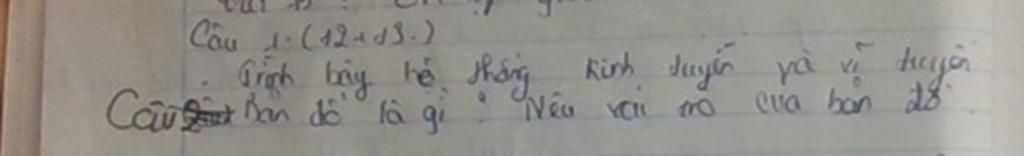 Câu 1. (12+13.)
. Trình bày hệ thống kinh tuyến và vĩ tuyến
Câu Bản đồ là gì? Nêu vai trò của bản đồ